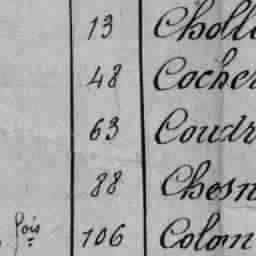 13 Choll
48 Cocher
63 Coudr
88 Chesn
fois 106 Colom